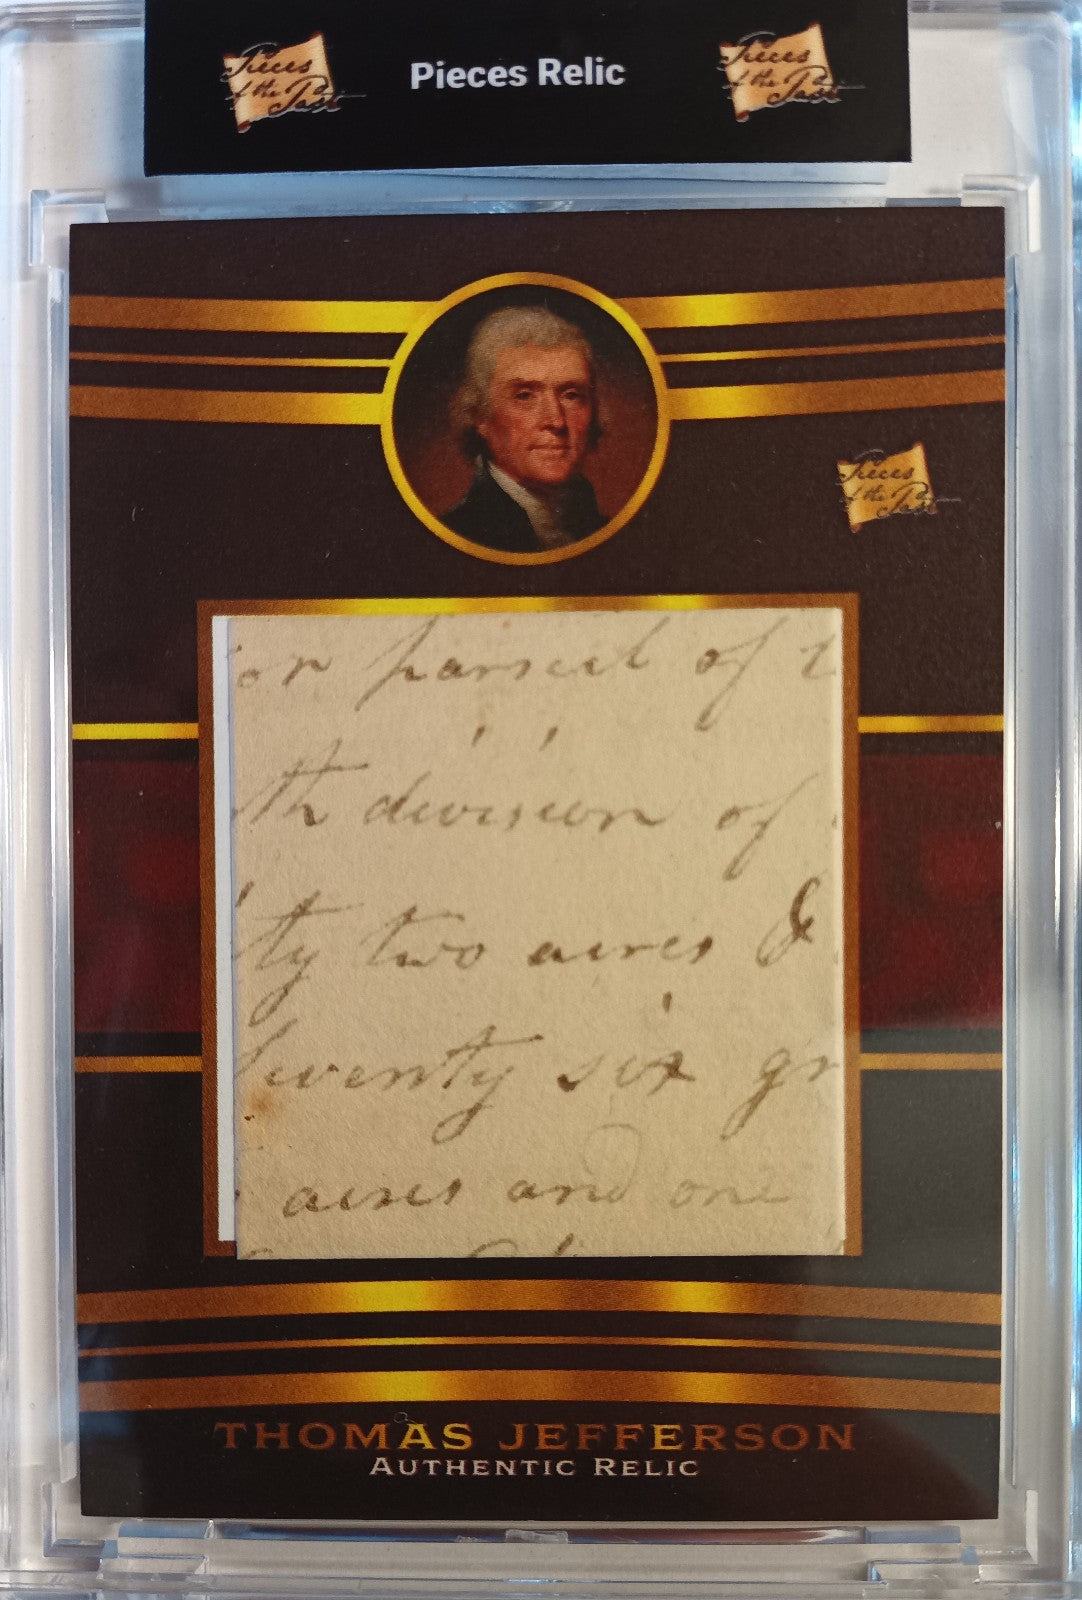 Pieces of the Past
Pieces Relic
Pieces of the Past
Pieces of the Past
or parseil of
th division of
ty two acres &
Seventy six gr
acres and one
THOMAS JEFFERSON
AUTHENTIC RELIC